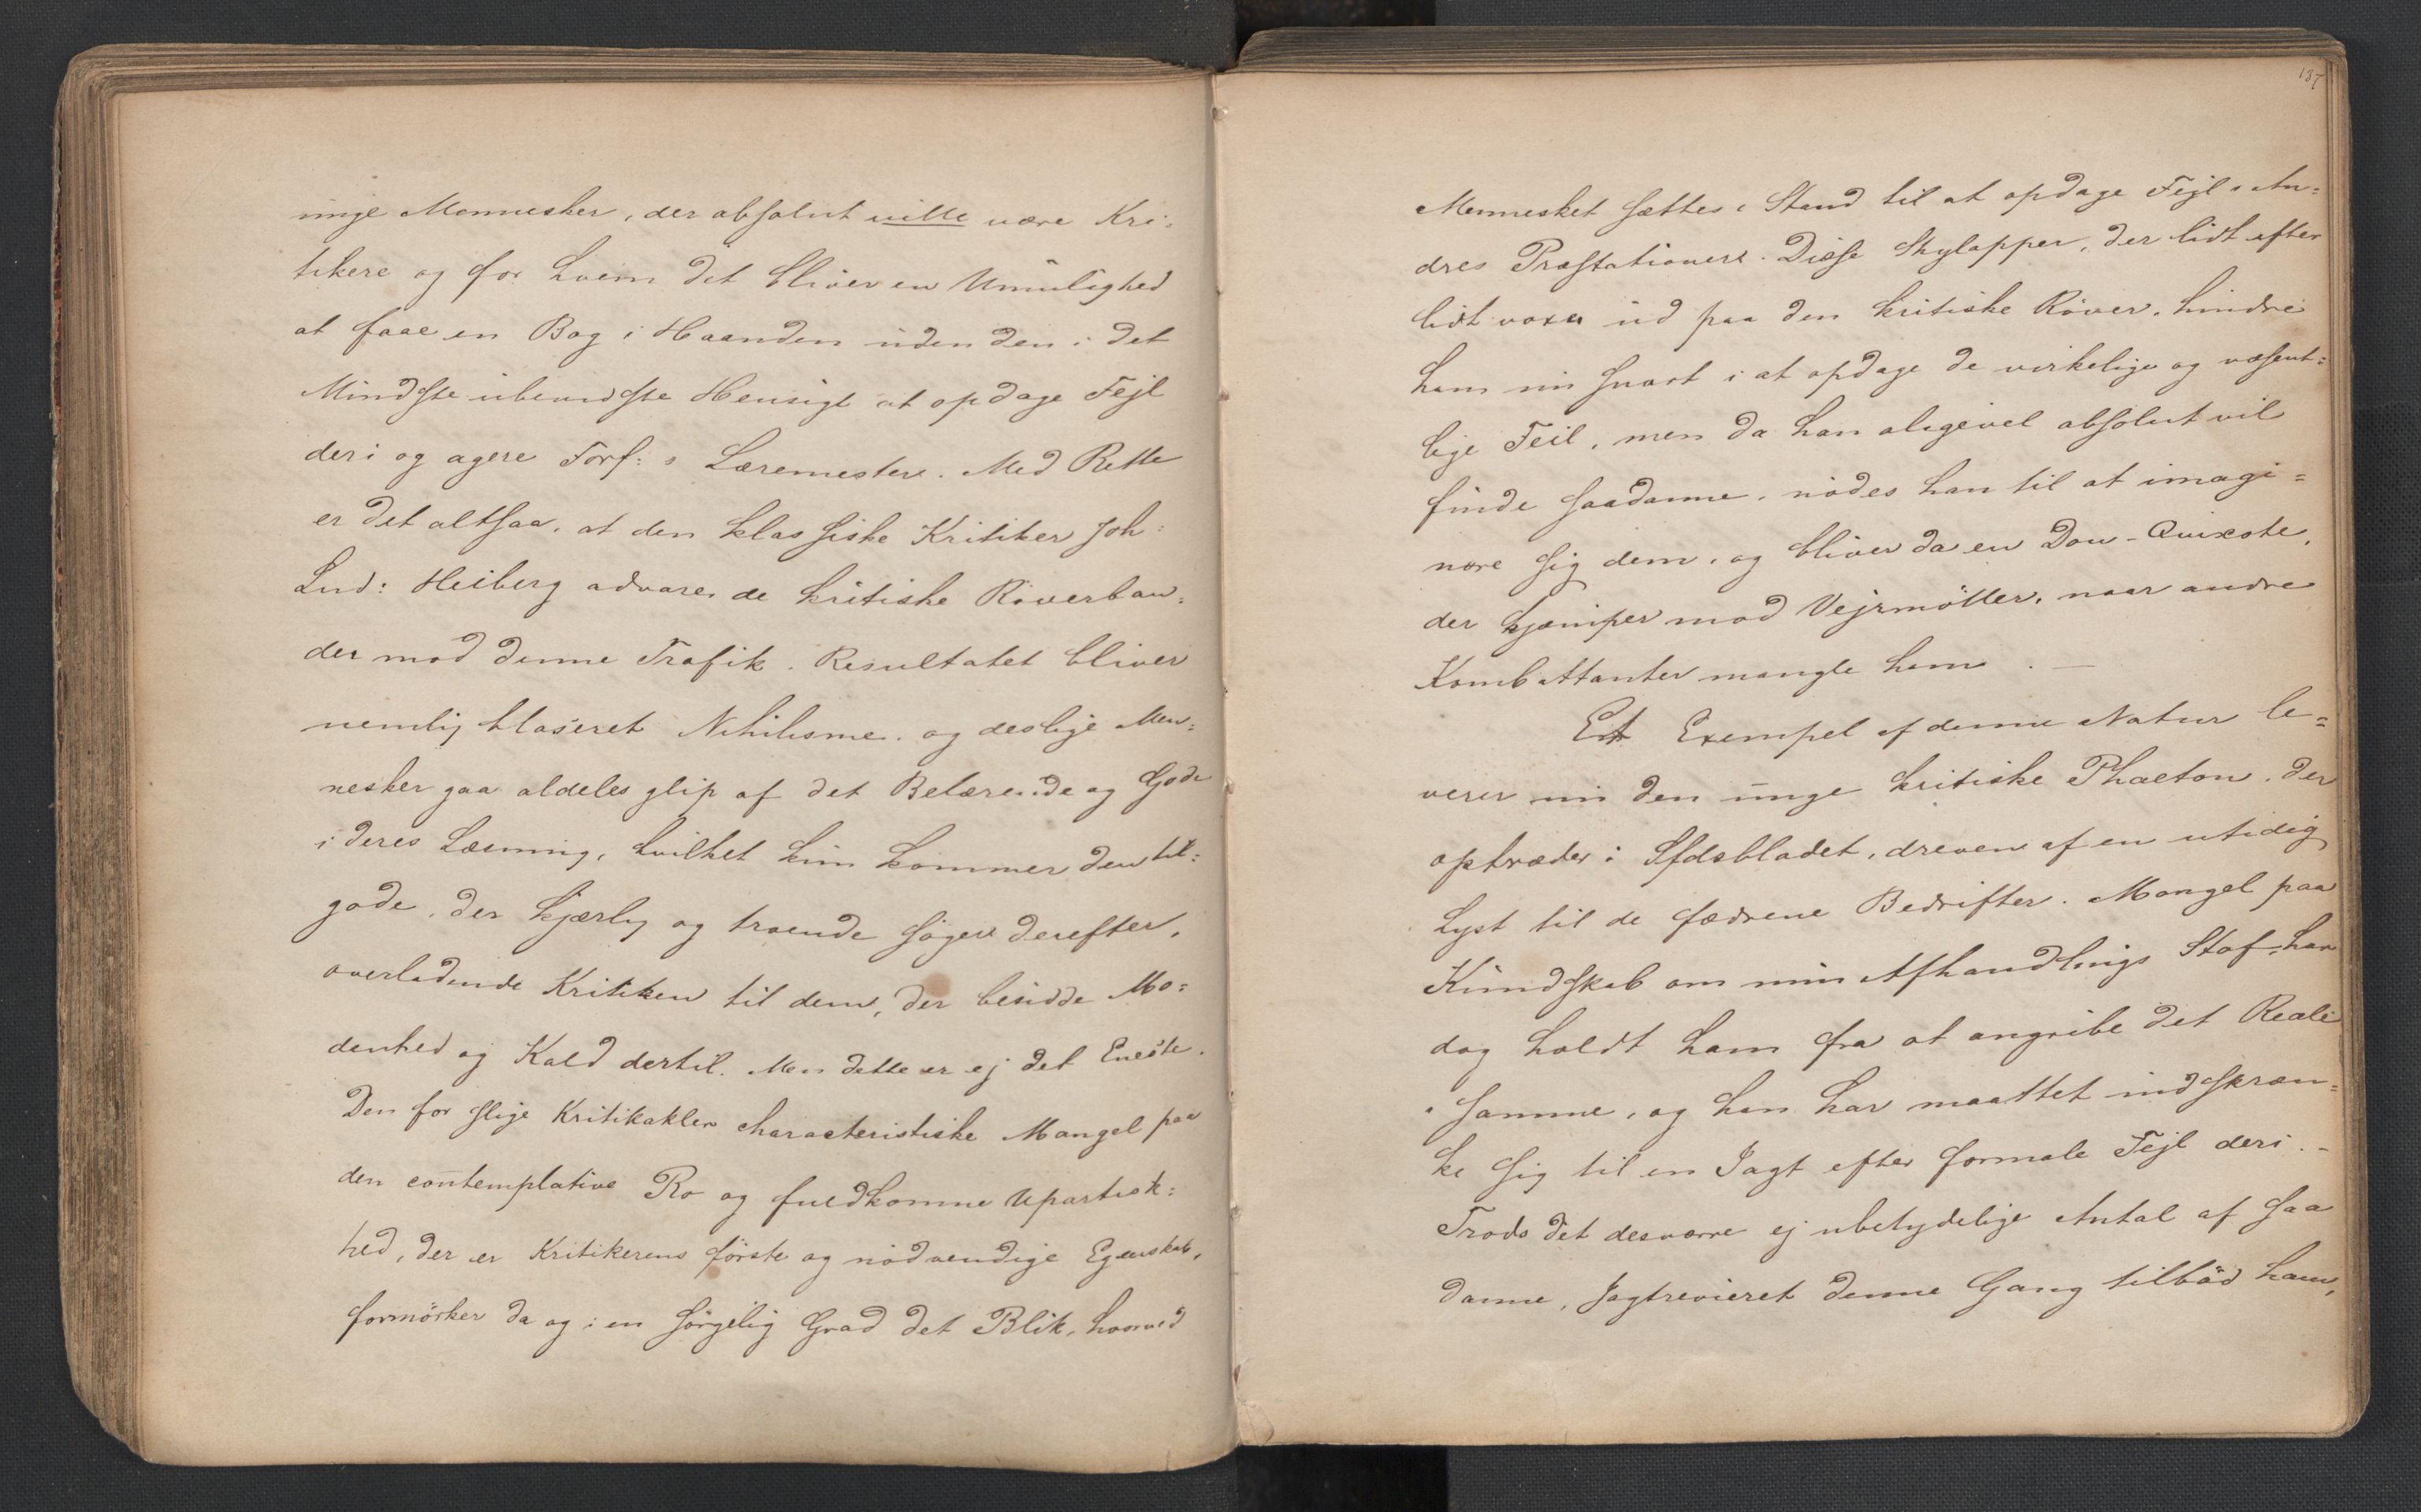 unge Mennesker, der absolut ville være Kri-
tikere og for hvem det bliver en Umulighed
at faae en Bog i Haanden uden den i det
Mindste ubevidste Hensigt at opdage Fejl
deri og agere Forf:s Læremestere. Med Rette
er det altsaa, at den klassiske Kritiker Joh:
Lud: Heiberg advarer de kritiske Röverban-
der mod denne Trafik. Resultatet bliver
nemlig blaseret Nihilisme, og deslige Men-
nesker gaa aldeles glip af det Belærende og Gode
i deres Læsning, hvilket kun kommer den til-
gode, der kjærlig og troende söger derefter,
overladende Kritiken til dem, der besidde Mo-
denhed og Kald dertil. Men dette er ej det Eneste.
Den for slige Kritikakler characteristiske Mangel paa
den contemplative Ro og fuldkomne Upartisk-
hed, der er Kritikerens förste og nödvendige Egenskab,
formörker da og i en sörgelig Grad det Blik, hvorved
137
Mennesket sættes i Stand til at opdage Fejl i An-
dres Præstationer. Disse Skylapper, der lidt efter
lidt voxe ud paa den kritiske Röver, hindre
ham nu snart i at opdage de virkelige og væsent-
lige Feil, men da han aligevel absolut vil
finde saadanne, nödes han til at imagi-
nere sig dem, og bliver da en Don-Quixote,
der kjæmper mod Vejrmöller, naar andre
Kombattanter mangle ham. —
Et Exempel af denne Natur le-
verer nu den unge kritiske Phaeton, der
optræder i Sfdsbladet, dreven af en utidig
Lyst til de fædrene Bedrifter. Mangel paa
Kundskab om min Afhandlings Stof har
dog holdt ham fra at angribe det Reale
i samme, og han har maattet indskræn-
ke sig til en Jagt efter formale Fejl deri. –
Trods det desværre ej ubetydelige Antal af saa
danne, Jagtrevieret denne Gang tilböd ham,